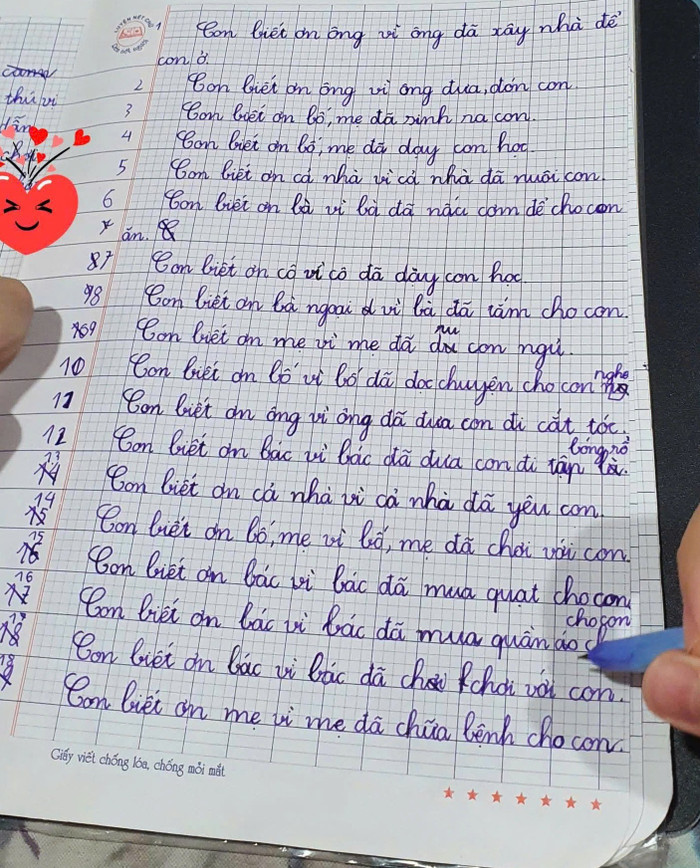 1 Con biết ơn ông vì ông đã xây nhà để
con ở.
2 Con biết ơn ông vì ông đưa, đón con.
3 Con biết ơn bố, mẹ đã sinh ra con.
4 Con biết ơn bố, mẹ đã dạy con học.
5 Con biết ơn cả nhà vì cả nhà đã nuôi con.
6 Con biết ơn bà vì bà đã nấu cơm để cho con
ăn.
7 Con biết ơn cô vì cô đã dạy con học.
8 Con biết ơn bà ngoại vì bà đã tắm cho con.
9 Con biết ơn mẹ vì mẹ đã ru con ngủ.
10 Con biết ơn bố vì bố đã đọc chuyện cho con nghe
11 Con biết ơn ông vì ông đã đưa con đi cắt tóc.
12 Con biết ơn bác vì bác đã đưa con đi tập bóng rổ
13 Con biết ơn cả nhà vì cả nhà đã yêu con.
14 Con biết ơn bố, mẹ vì bố, mẹ đã chơi với con.
15 Con biết ơn bác vì bác đã mua quạt cho con.
16 Con biết ơn bác vì bác đã mua quần áo cho con
17 Con biết ơn bác vì bác đã chơi với con.
18 Con biết ơn mẹ vì mẹ đã chữa bệnh cho con.
Giấy viết chống lóa, chống mỏi mắt
thú vì